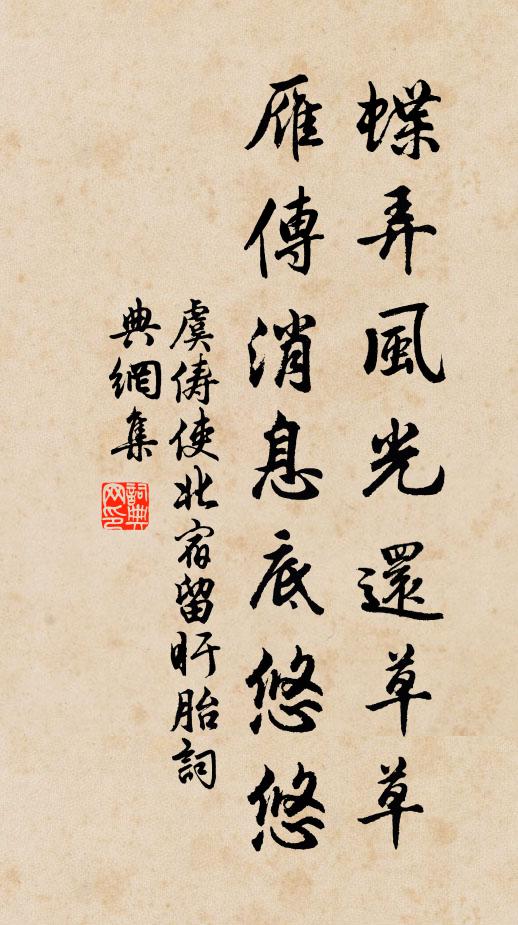 蝶弄風光還草草
雁傳消息底悠悠
虞俦使北宿留盱胎詞
典網集
詞典
网印